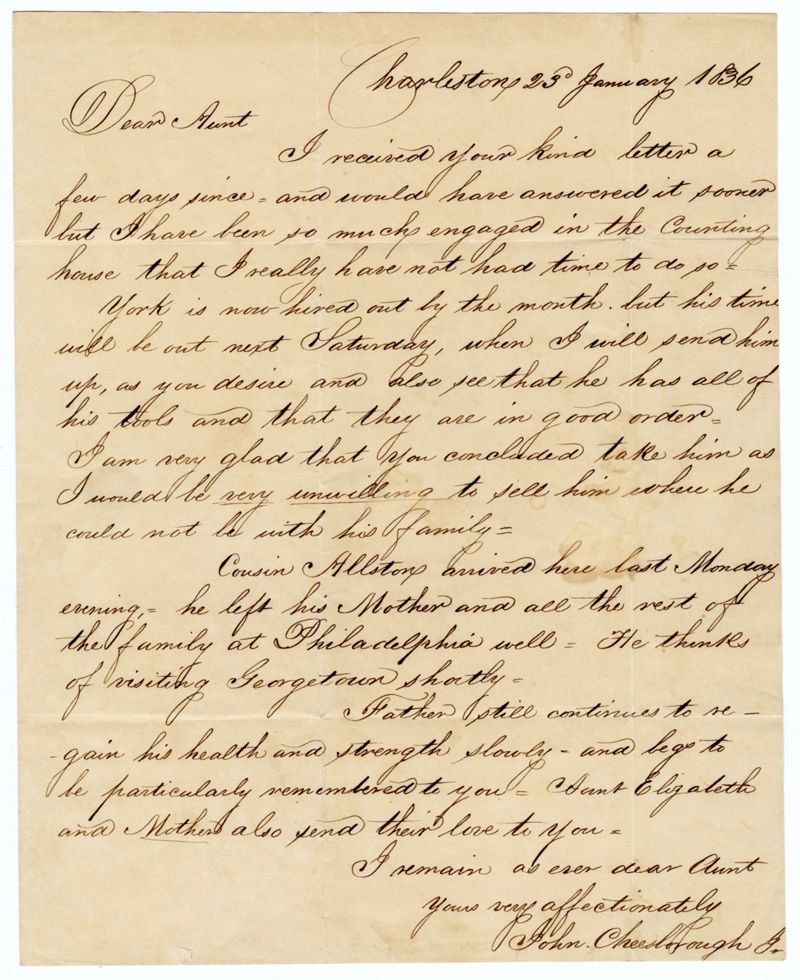 Charleston 23d January 1836
Dear Aunt
I received your kind letter a
few days since = and would have answered it sooner
but I have been so much engaged in the Counting
house that I really have not had time to do so =
York is now hired out by the month. but his time
will be out next Saturday, when I will send him
up, as you desire and also see that he has all of
his tools and that they are in good order =
I am very glad that you concluded take him as
I would be very unwilling to sell him where he
could not be with his family =
Cousin Allston arrived here last Monday
evening, = he left his Mother and all the rest of
the family at Philadelphia well = He thinks
of visiting Georgetown shortly =
Father still continues to re-
-gain his health and strength slowly - and begs to
be particularly remembered to you = Aunt Elizabeth
and Mother also send their love to you =
I remain as ever dear Aunt
Yours very affectionately
John. Cheesborough Jr